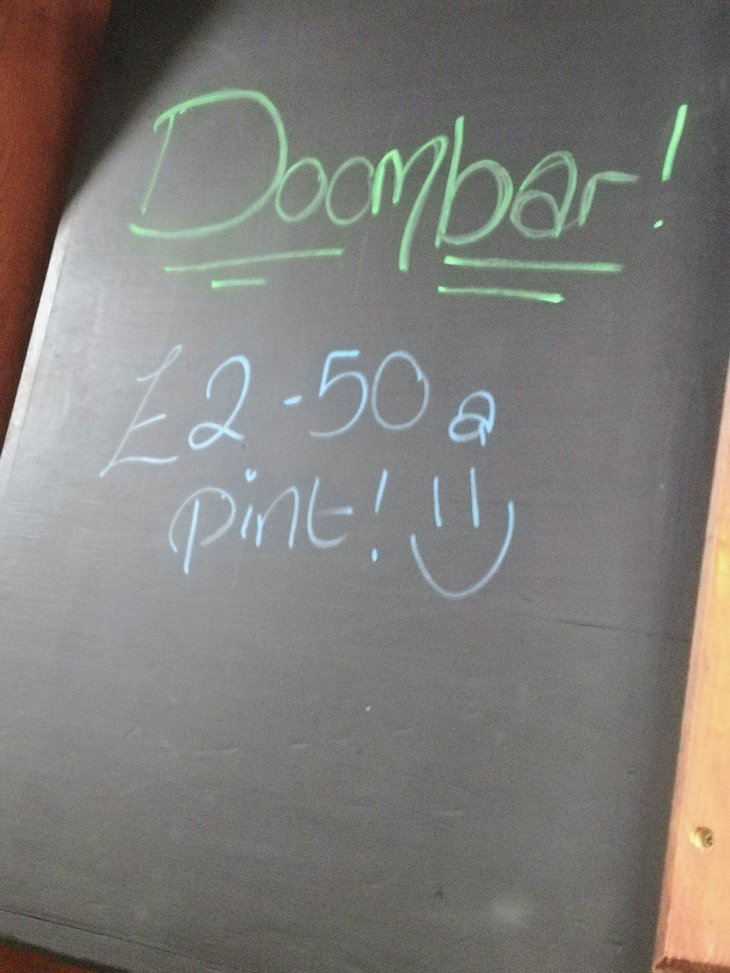 Doombar!
£2-50 a
pint!